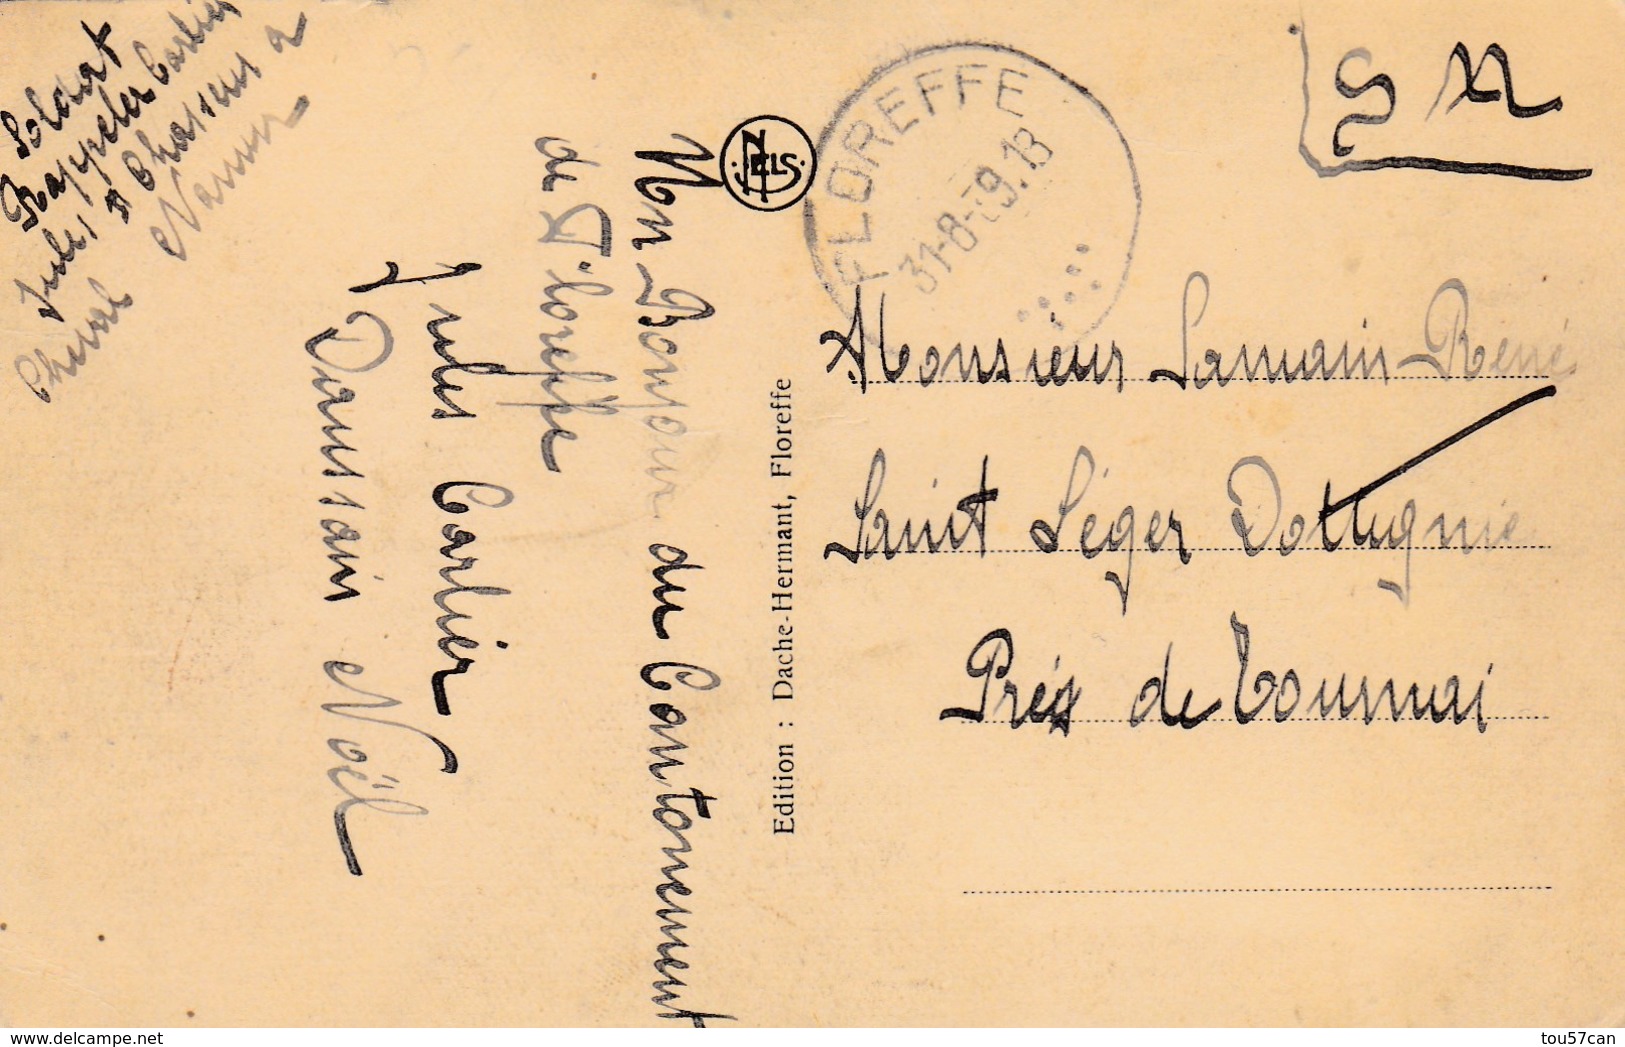 Soldat
Rappeler Carlier
Jules 1er Chasseur a
Cheval Namur
Mon Bonjour du Cantonement
de Floreffe
Jules Carlier
Daussain Noël
NELS
Edition : Dache-Hermant, Floreffe
FLOREFFE
31-8-39.18
S M
Monsieur Samain René
Saint Léger Dottignie
Près de Tournai
delcampe.net
tou57can